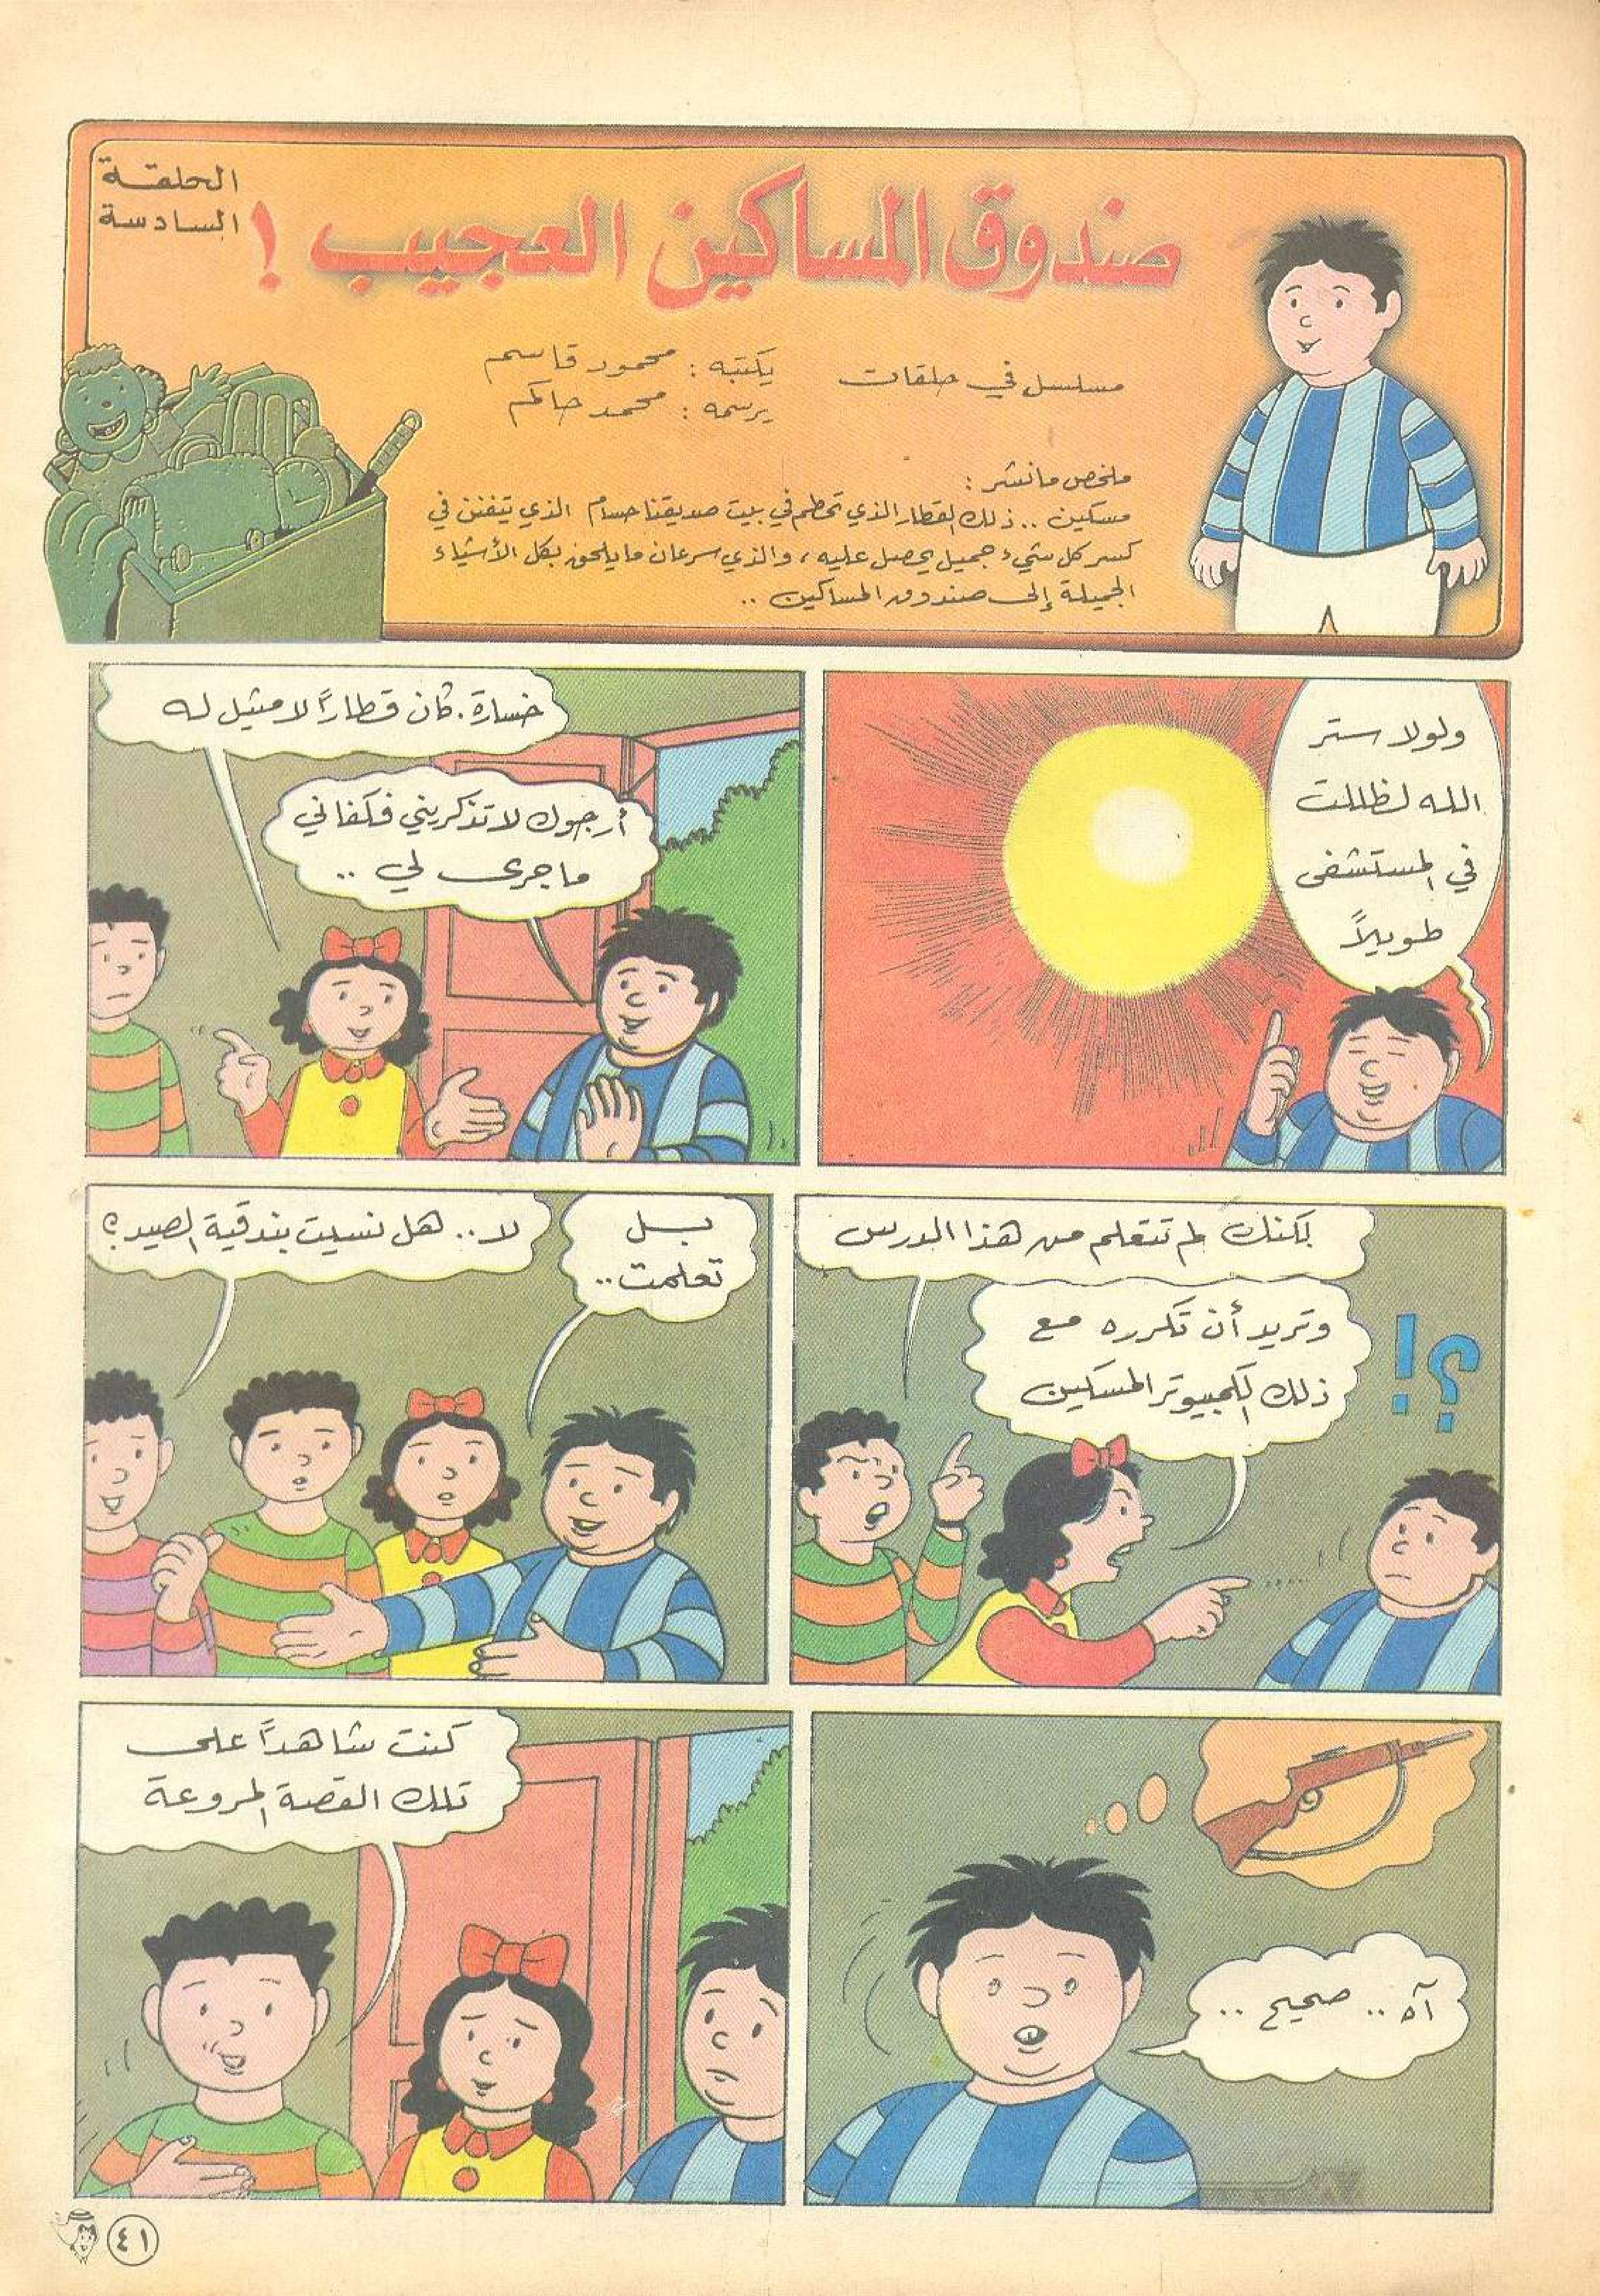 الحلقة
السادسة
صندوق المساكين العجيب !
مسلسل في حلقات
يكتبه : محمود قاسم
يرسمه : محمد حاكم
ملخص مانشر :
مسكين .. ذلك القطار الذي تحطم في بيت صديقنا حسام الذي يتفنن في
كسر كل شيء جميل يحصل عليه ، والذي سرعان ما يلحق بكل الأشياء
الجميلة إلى صندوق المساكين ..
ولولا ستر
الله لظللت
في المستشفى
طويلاً
خسارة . كان قطاراً لا مثيل له
أرجوك لا تذكريني فكفاني
ما جرى لي ..
لكنك لم تتعلم من هذا الدرس
وتريد أن تكرره مع
ذلك الكمبيوتر المسكين
؟!
بل
تعلمت ..
لا .. هل نسيت بندقية الصيد ؟
آه .. صحيح ..
كنت شاهداً على
تلك القصة المروعة
٤١